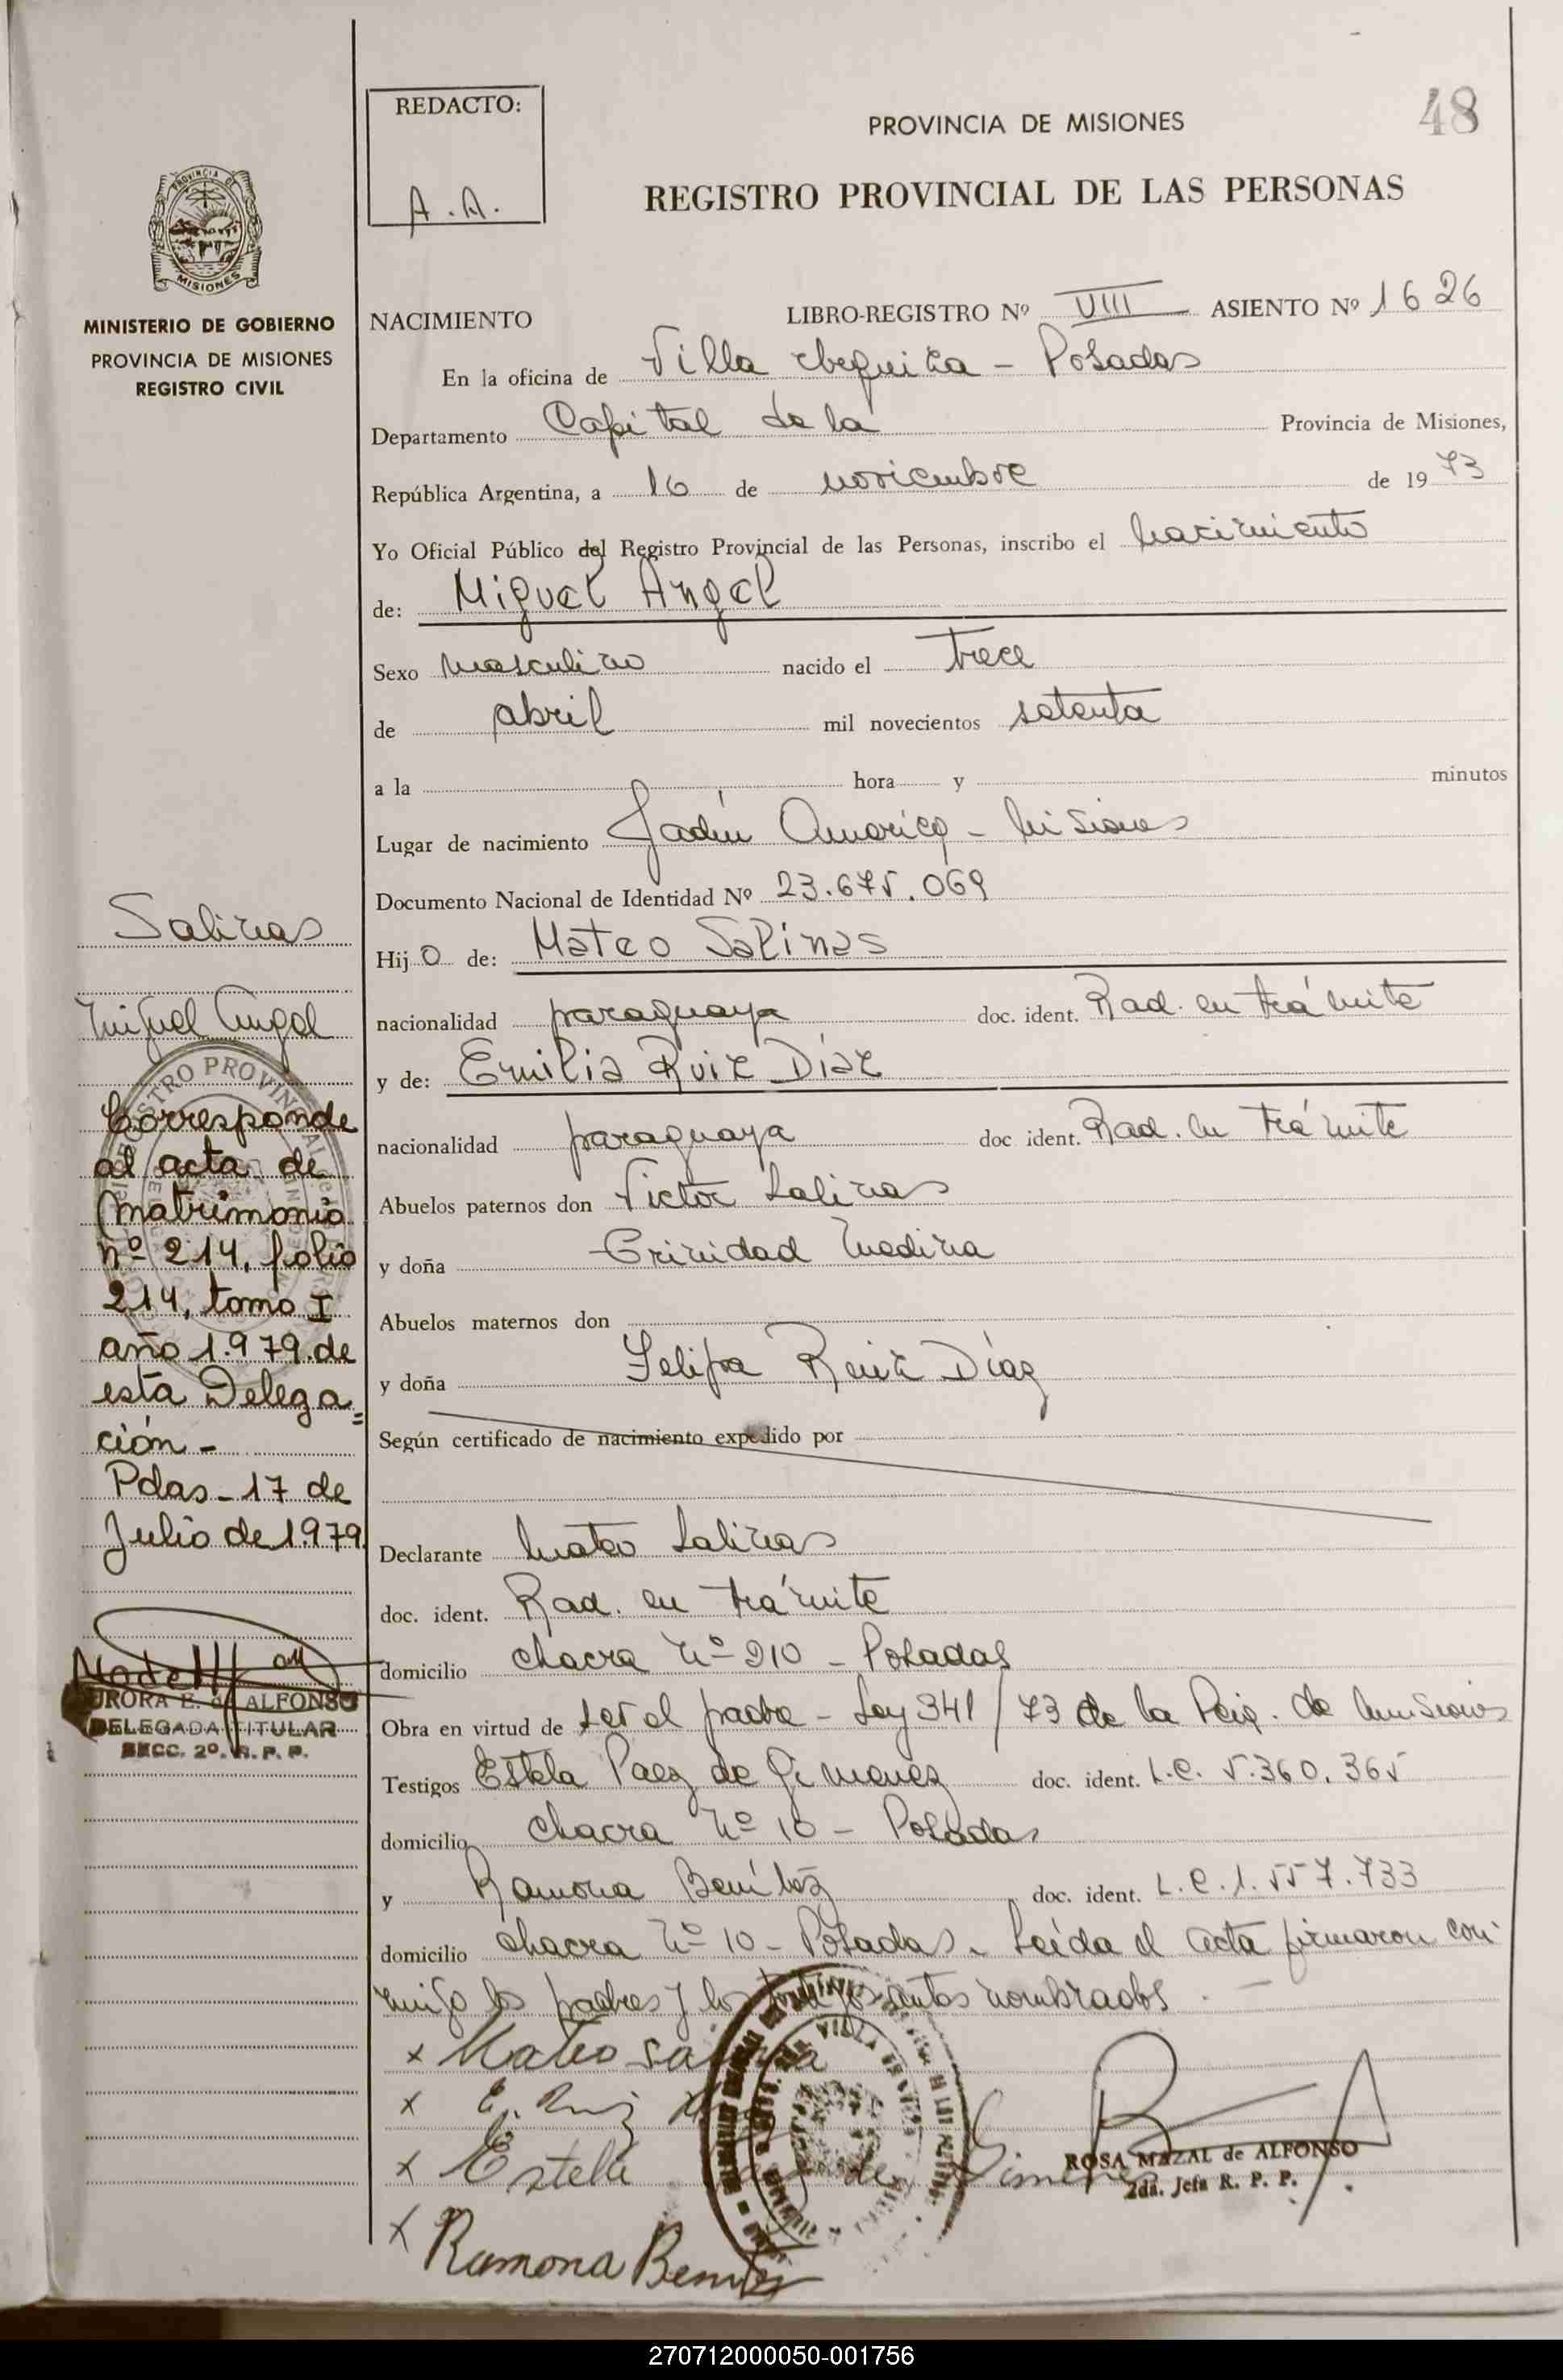 48
REDACTO:
A.A.
PROVINCIA DE MISIONES
REGISTRO PROVINCIAL DE LAS PERSONAS
PROVINCIA D
MISIONES
MINISTERIO DE GOBIERNO
PROVINCIA DE MISIONES
REGISTRO CIVIL
NACIMIENTO LIBRO-REGISTRO Nº VIII ASIENTO Nº 1626
En la oficina de Villa - Posadas
Departamento Capital de la Provincia de Misiones,
República Argentina, a 16 de noviembre de 1973
Yo Oficial Público del Registro Provincial de las Personas, inscribo el nacimiento
de: Miguel Angel
Sexo masculino nacido el trece
de abril mil novecientos setenta
a la hora y minutos
Lugar de nacimiento Jadín América - Misiones
Documento Nacional de Identidad Nº 23.675.069
Hijo de: Mateo Salinas
nacionalidad paraguaya doc. ident. Rad. en trámite
y de: Emilia Ruiz Díaz
nacionalidad paraguaya doc ident. Rad. en trámite
Abuelos paternos don Victor Salinas
y doña Trinidad Medina
Abuelos maternos don
y doña Felipa Ruiz Díaz
Según certificado de nacimiento expedido por
Declarante Mateo Salinas
doc. ident. Rad. en trámite
domicilio chacra Nº 210 - Posadas
Obra en virtud de ser el padre - Ley 341/73 de la Pcia. de Misiones
Testigos Estela Paez de Gimenez doc. ident. L.C. 5.360.365
domicilio chacra Nº 10 - Posadas
y Ramona Benítez doc. ident. L.C. 1.557.733
domicilio chacra Nº 10 - Posadas. Leída el acta firmaron con
migo los padres y los testigos antes nombrados. -
x Mateo Salinas
x E. Ruiz
x Estela de Gimenez
x Ramona Benitez
ROSA MAZAL de ALFONSO
2da. Jefa R. P. P.
Salinas
Miguel Angel
Corresponde
al acta de
Matrimonio
nº 214, folio
214, tomo I
año 1.979 de
esta Delega=
ción -
Pdas - 17 de
Julio de 1979.
AURORA E. de ALFONSO
DELEGADA TITULAR
SECC. 2º. R. P. P.
270712000050-001756